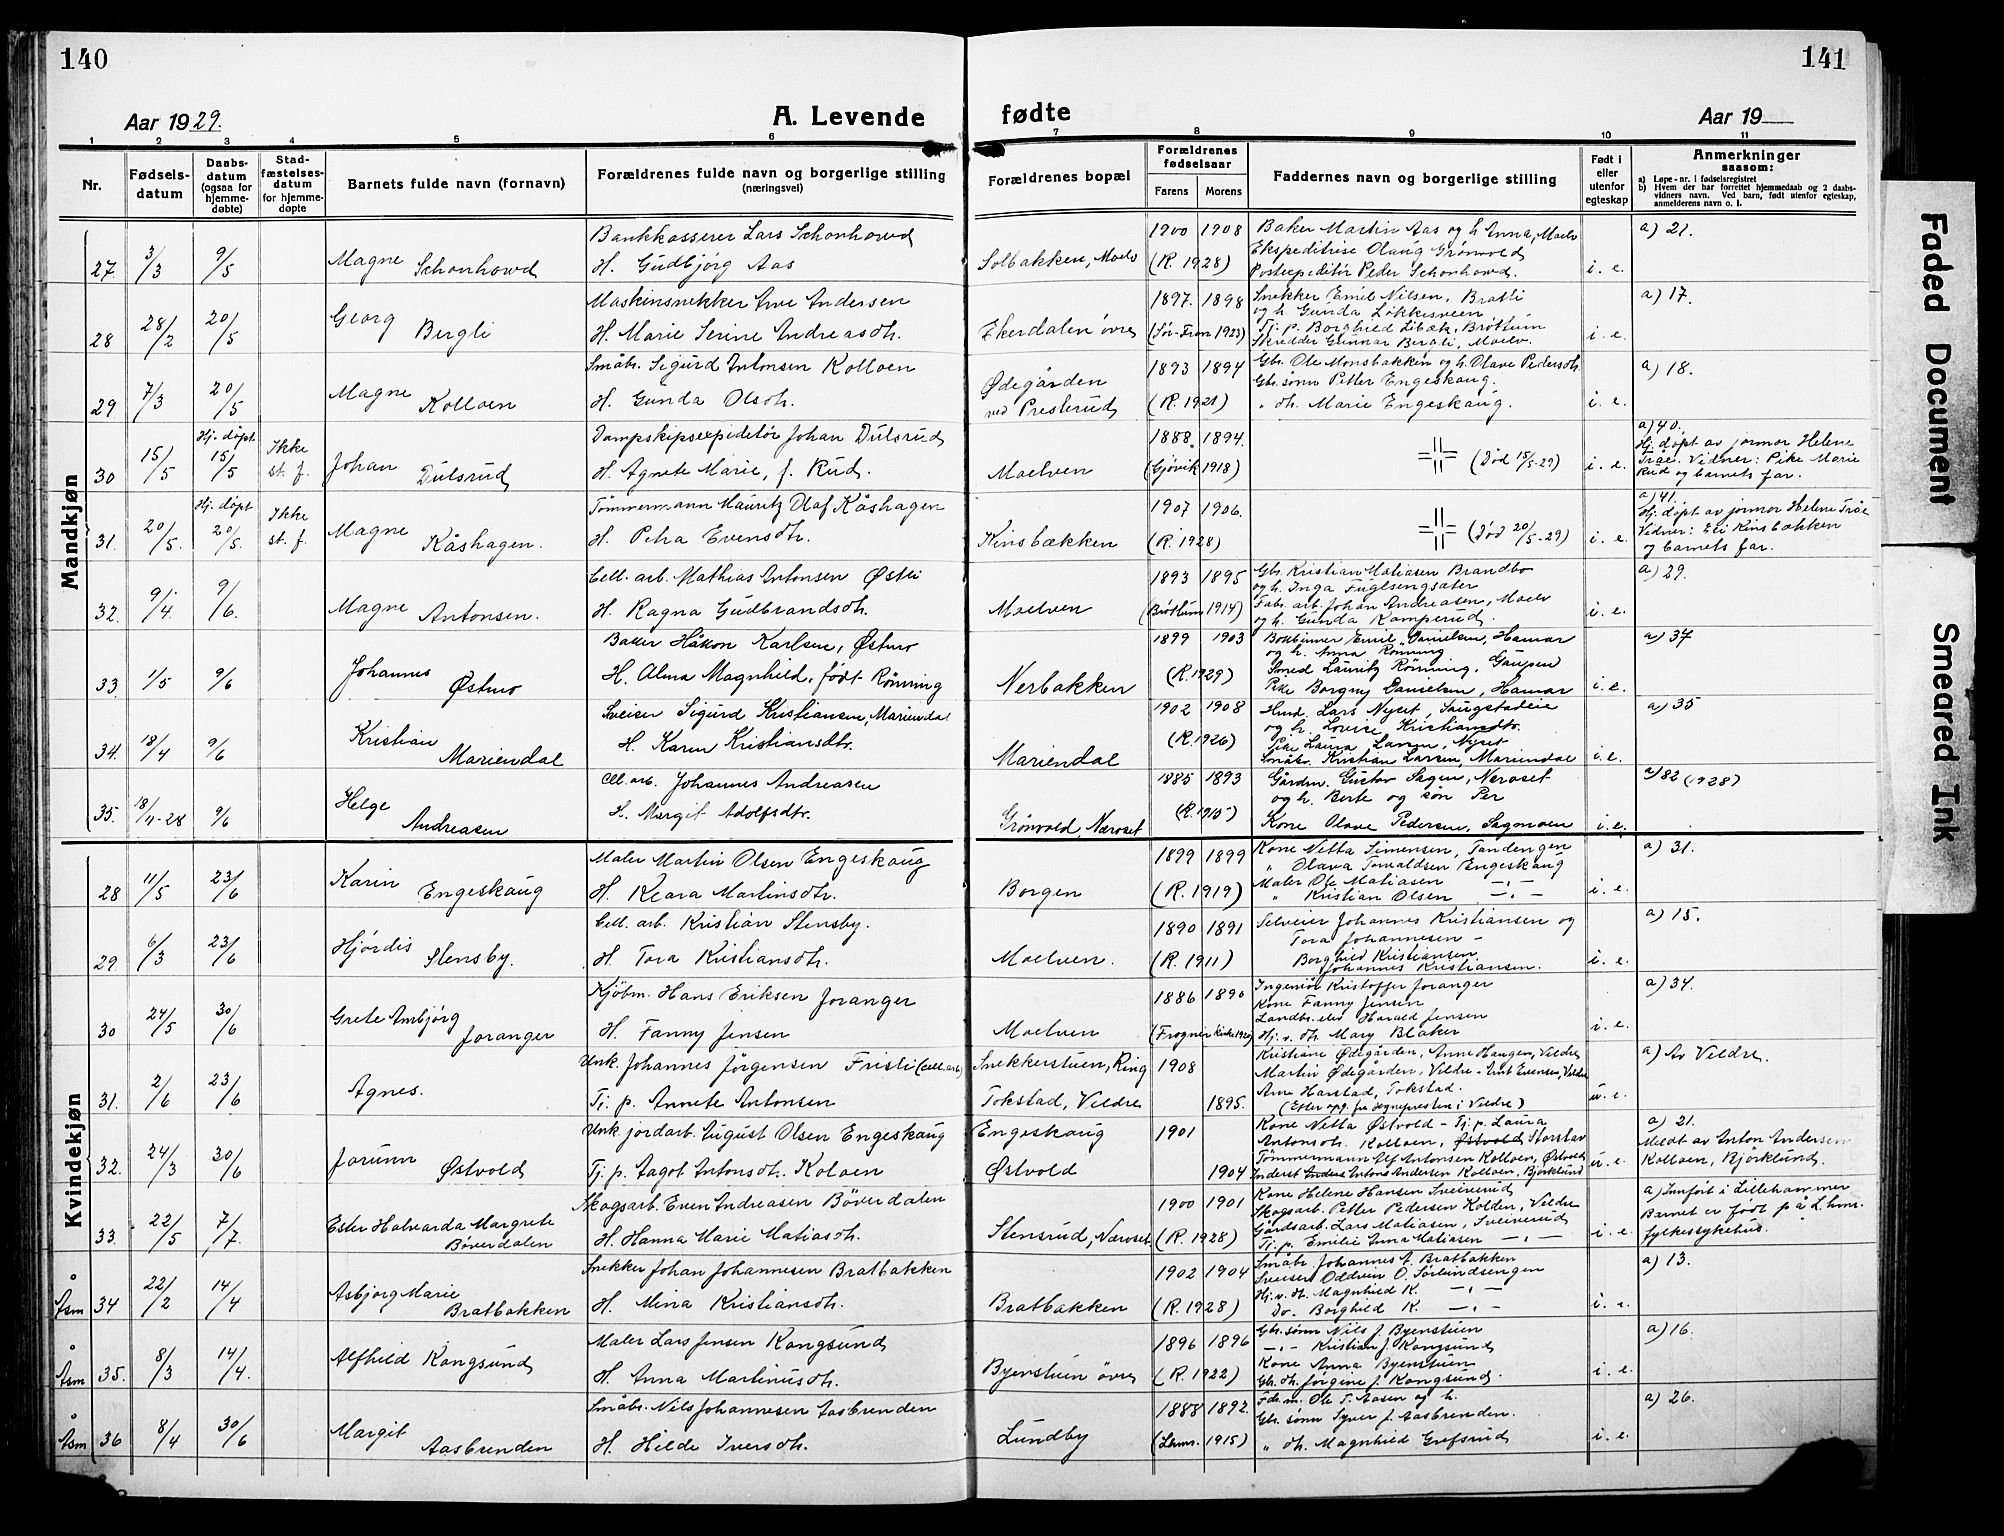 140
141
Aar 1929.
A. Levende
fødte
Aar 19
1 2 3 4 5 6 7 8 9 10 11
Nr.
Fødsels-
datum
Daabs-
datum
(ogsaa for
hjemme-
døbte)
Stad-
fæstelses-
datum
for hjemme-
døpte
Barnets fulde navn (fornavn)
Forældrenes fulde navn og borgerlige stilling
(næringsvei)
Forældrenes bopæl
Forældrenes
fødselsaar
Farens Morens
Faddernes navn og borgerlige stilling
Født i
eller
utenfor
egteskap
Anmerkninger
saasom:
a) Løpe-nr. i fødselsregistret
b) Hvem der har forrettet hjemmedaab og 2 daabs-
vidners navn. Ved barn, født utenfor egteskap,
anmelderens navn o. l.
Mandkjøn
27. 3/3 9/5 Magne Schonhowd
Bankkasserer Lars Schonhowd
H. Gudbjørg Aas
Solbakken, Moelv
1900 1908
(R. 1928)
Baker Martin Aas og h. Anna, Moelv
Ekspeditrise Olaug Grønvold
Postexpeditør Peder Schonhowd.
i. e.
a) 21.
28 28/2 20/5 Georg Bergli
Maskinsnekker Arve Andersen
H. Marie Serine Andreasdtr.
Ekerdalen øvre
1897. 1898
(Sør-Fron 1923)
Snekker Emil Nilsen, Bratli
og h. Gunda Løkkesveen
Tj. p. Borghild Libæk, Brøttum
Skredder Gunnar Bergli, Moelv.
i. e.
a) 17.
29 7/3 20/5 Magne Kolloen
Småbr. Sigurd Antonsen Kolloen
H. Gunda Olsdtr.
Ødegården
ved Presterud
1893 1894
(R. 1921)
Gbr. Ole Monsbakken og h. Olave Pedersdtr.
Gbr. sønn Petter Engeskaug.
" dtr. Marie Engeskaug.
i. e.
a) 18.
30 15/5 Hj. døpt 15/5 Ikke st. f. Johan Dulsrud
Dampskipsexpeditør Johan Dulsrud
H. Agnete Marie, f. Rud.
Moelven
1888. 1894.
(Gjøvik 1918)
(Død 15/5-29)
i. e.
a) 40.
Hj. døpt av jormor Helene
Tråe. Vidner: Pike Marie
Rud og barnets far.
31. 20/5. Hj. døpt 20/5. Ikke st. f. Magne Kåshagen.
Tømmermann Mauritz Olaf Kåshagen
H. Petra Evensdtr.
Kinsbækken
1907 1906.
(R. 1928)
(Død 20/5-29)
i. e.
a) 41.
Hj. døpt av jormor Helene Tråe
Vidner: Eli Kinsbækken
og barnets far.
32. 9/4 9/6. Magne Antonsen.
Cell. arb. Mathias Antonsen Østli
H. Ragna Gudbrandsdtr.
Moelven
1893 1895
(Brøttum 1914)
Gbr. Kristian Matiasen Brandbo
og h. Inga Fuglsengsæter
Fabr. arb. Johan Andreasen, Moelv
og h. Gunda Kamperud.
i. e.
a) 29.
33. 1/5 9/6 Johannes Østmo
Baker Håkon Karlsen, Østmo
H. Alma Magnhild, født Rønning
Nerbakken
1899 1903
(R. 1929)
Bokbinner Emil Danielsen, Hamar
og h. Anna Rønning
Smed Lauritz Rønning, Gaupen
Pike Borgny Danielsen, Hamar
i. e.
a) 37
34. 18/4 9/6 Kristian Mariendal
Sveiser Sigurd Kristiansen, Mariendal
H. Karen Kristiansdtr.
Mariendal
1902 1908
(R. 1926)
Husd. Lars Nyset, Saugstadeie
og h. Lovise Kristiansdtr.
Pike Laura Larsen, Nyset
Småbr. Kristian Larsen, Mariendal
i. e.
a) 35
35. 18/11-28 9/6 Helge Andreasen
Cell. arb. Johannes Andreasen
H. Margit Adolfsdtr.
Grønvold, Næroset
1885 1893
(R. 1915)
Gårdm. Gustav Sagen, Næroset
og h. Berte og søn Per
Kone Olave Pedersen, Sagmoen
i. e.
a) 82 (1928)
Kvindekjøn
28 11/5 23/6 Karin Engeskaug
Maler Martin Olsen Engeskaug
H. Klara Martinsdtr.
Borgen
1899 1899
(R. 1919)
Kone Netta Simensen, Tandengen
" Olava Torvaldsen Engeskaug
Maler Ole Matiasen —"—
" Kristian Olsen —"—
i. e.
a) 31.
29 6/3 23/6 Hjørdis Stensby.
Cell. arb. Kristian Stensby.
H. Tora Kristiansdtr.
Moelven.
1890 1891
(R. 1911)
Selveier Johannes Kristiansen og
Tora Johannesen –
Borghild Kristiansen
Johannes Kristiansen.
i. e.
a) 15.
30 24/5 30/6 Grete Ambjørg Joranger
Kjøbm. Hans Eriksen Joranger
H. Fanny Jensen
Moelven
1886 1890
(Frogner kirke 1920)
Ingeniør Kristoffer Joranger
Kone Fanny Jensen
Landbr. elev Harald Jensen
Hj. v. dtr. Mary Blaker
i. e.
a) 34.
31. 2/6 23/6 Agnes.
Unk. Johannes Jørgensen Fristi (Cell. arb)
Tj. p. Annete Antonsen
Snekkerstuen, Ring
Tokstad, Veldre
1908
1895.
Kristiane Ødegården, Anne Haugen, Veldre
Martin Ødegården, Veldre – Emt Evensen, Veldre
Arne Harstad, Tokstad.
(Etter opg. fra sognepresten i Veldre)
u. e.
a) Av Veldre.
32. 24/3 30/6 Jorunn Østvold
Unk jordarb. August Olsen Engeskaug
Tj. p. Aagot Antonsdtr. Koloen
Engeskaug
Østvold
1901
1904
Kone Netta Østvold – Tj. p. Laura
Antonsdtr. Kolloen, Østvold Storstav
Tømmermann Elf Antonsen Kolloen, Østvold
Inderst Anton Andersen Kolloen, Bjørklund
u. e.
a) 21.
Meldt av Anton Andersen
Kolloen, Bjørklund.
33. 22/5 7/7 Ester Halvarda Margrete
Böverdalen
Skogsarb. Even Andreasen Böverdalen
H. Hanna Marie Matiasdtr.
Stensrud, Næroset
1900 1901
(R. 1928)
Kone Helene Hansen Sveiverud
Skogsarb. Petter Pedersen Kolden, Veldre
Gårdsarb. Lars Matiasen, Sveiverud
Tj. p. Emilie Anna Matiasen —"—
i. e.
a) Innført i Lillehammer
Barnet er født på L.hmr.
fylkessykehus.
Åsm 34 22/2 14/4 Asbjørg Marie
Bratbakken
Snekker Johan Johannesen Bratbakken
H. Mina Kristiansdtr.
Bratbakken
1902 1904
(R. 1928)
Småbr. Johannes A. Bratbakken
Sveiser Oddvin O. Sørlundsengen
Hj. v. dtr. Magnhild K. —"—
Do. Borghild K. —"—
i. e.
a) 13.
Åsm 35. 8/3 14/4. Alfhild Kongsund
Maler Lars Jensen Kongsund
H. Anna Martinusdtr.
Byenstuen øvre
1896 1896
(R. 1922)
Gbr. sønn Nils J. Byenstuen
—"— Kristian J. Kongsund
Kone Anna Byenstuen
Gbr. dtr. Jørgine J. Kongsund.
i. e.
a) 16.
Åsm 36 8/4 30/6 Margit Aasbrenden
Småbr. Nils Johannesen Aasbrenden
H. Hilde Iversdtr.
Lundby
1888 1892.
(Lhmr. 1915)
Fdr. m. Ole T. Aasen og h.
Gbr. sønn Syver J. Aasbrenden.
" dtr. Magnhild Grefsrud
i. e.
a) 26.
Faded Document
Smeared Ink